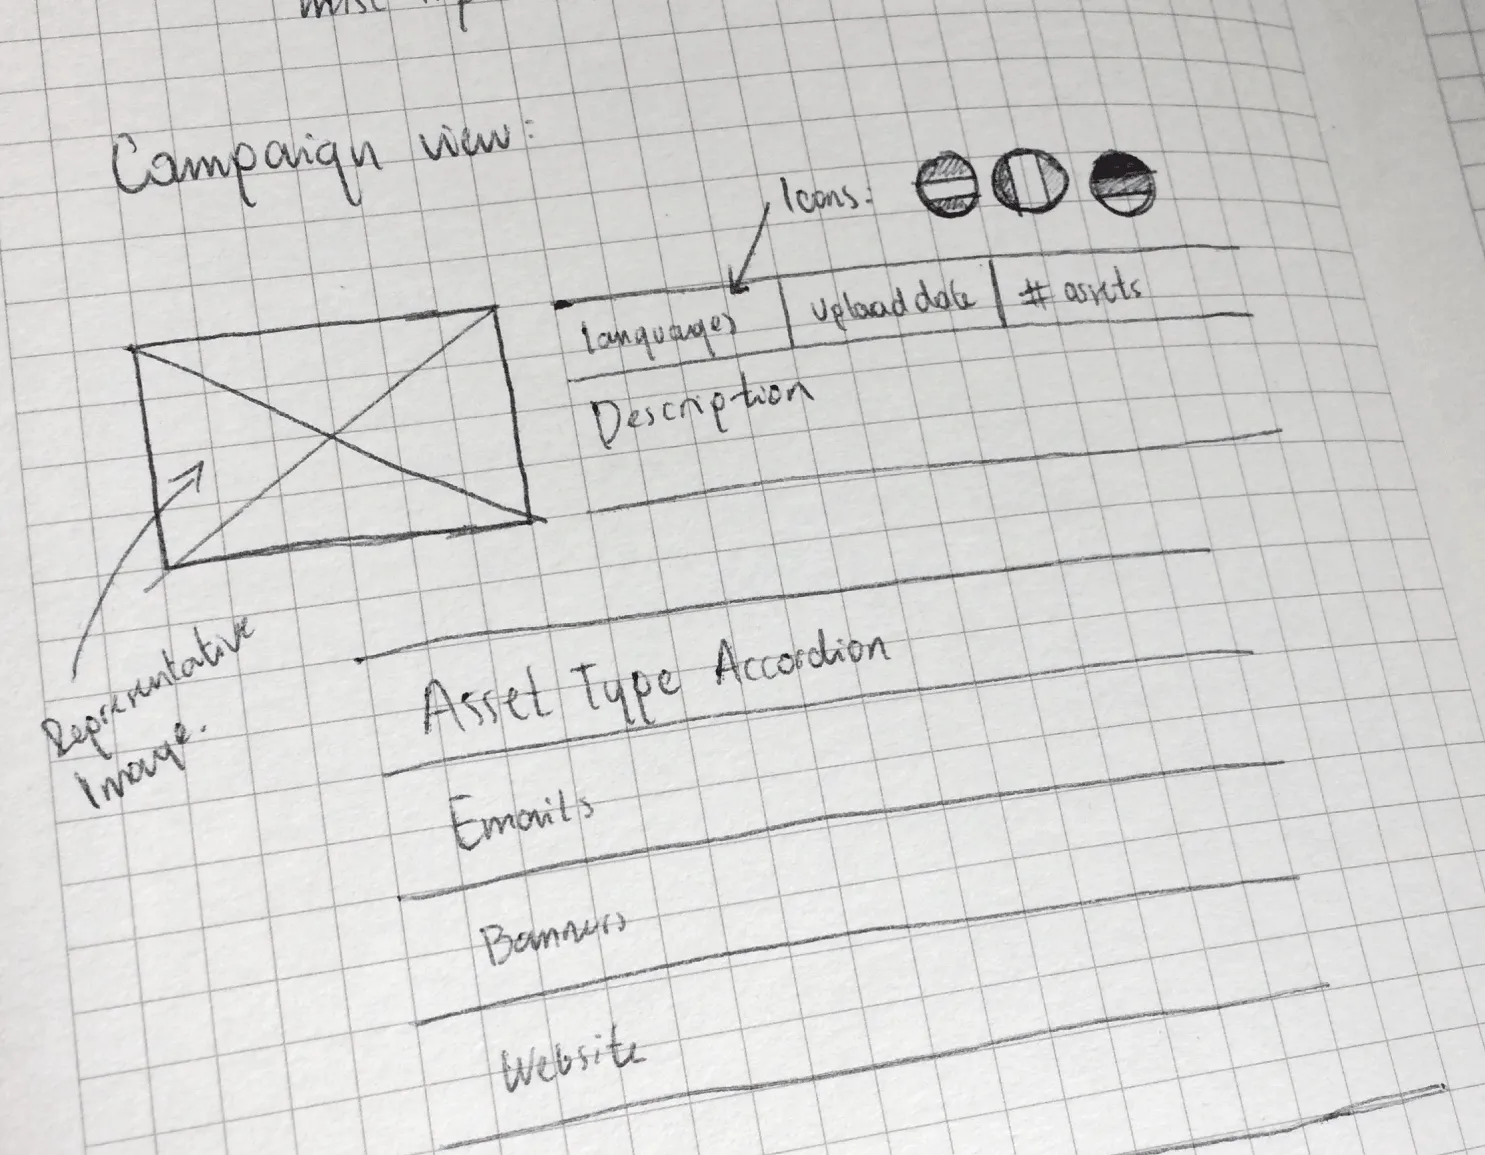 Campaign view:
Icons:
Languages
Upload date
# assets
Description
Representative
Image.
Asset Type Accordion
Emails
Banners
Website